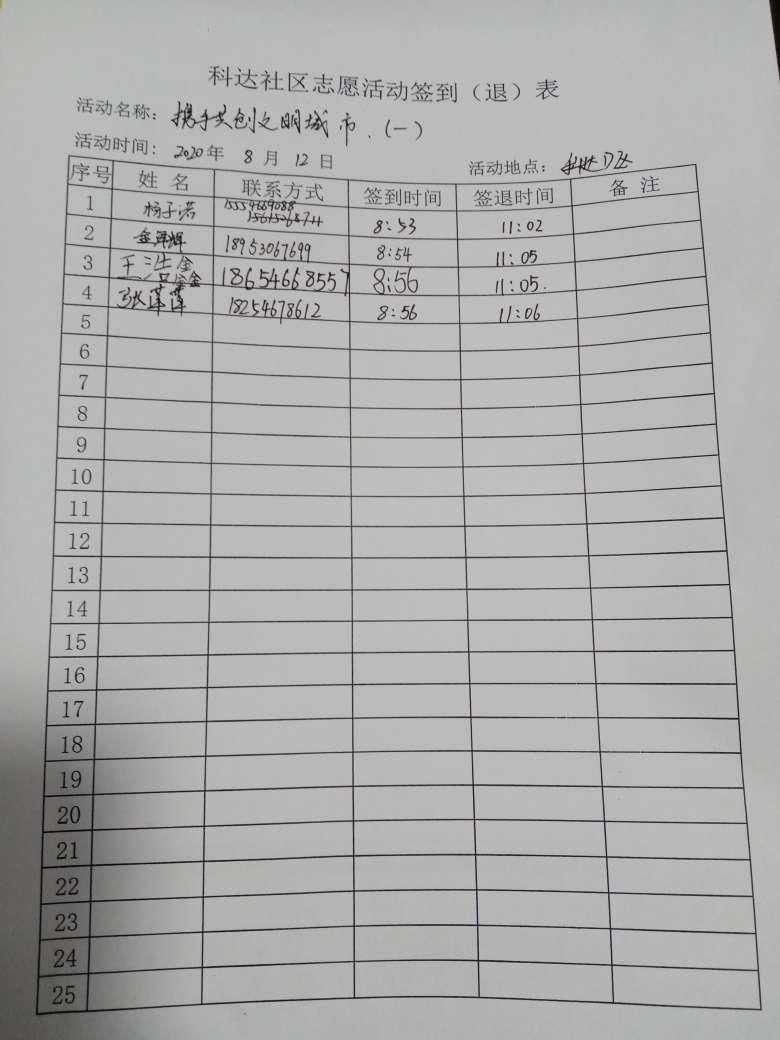 科达社区志愿活动签到（退）表
活动名称：携手共创文明城市、(一)
活动时间：2020年 8 月 12 日 活动地点：科达D区
序号 姓 名 联系方式 签到时间 签退时间 备 注
1 杨子涵 15554669088 8:53 11:02
2 18953067699 8:54 11:05
3 王浩鑫 18654668557 8:56 11:05.
4 张萍萍 18254678612 8:56 11:06
5
6
7
8
9
10
11
12
13
14
15
16
17
18
19
20
21
22
23
24
25